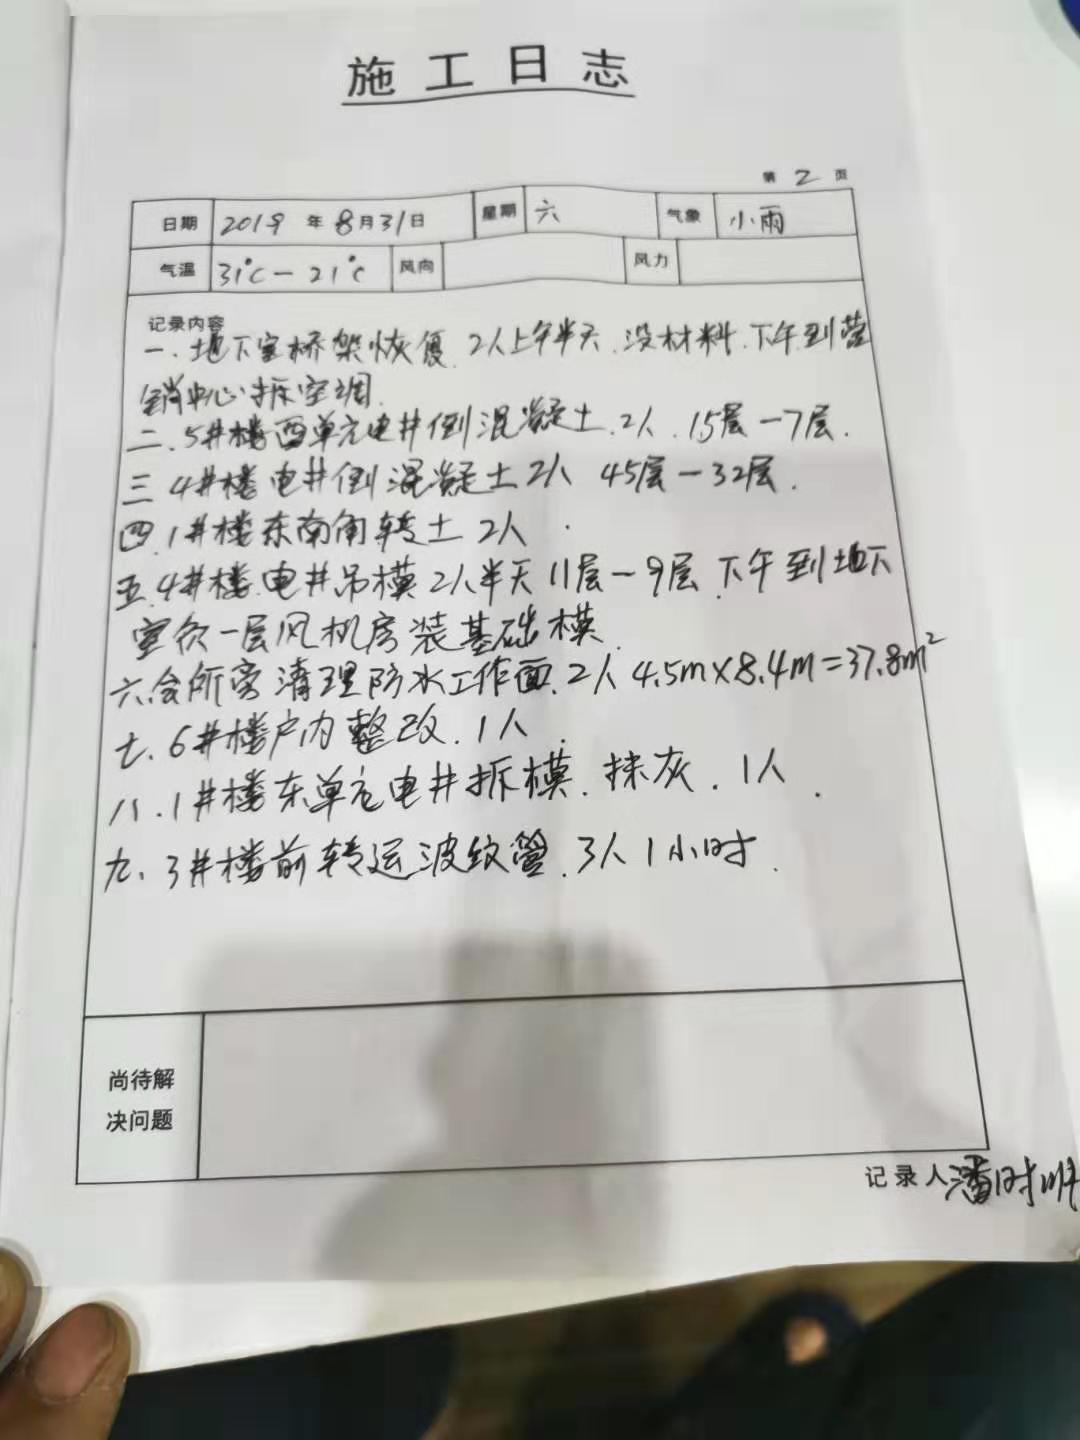 施工日志
第 2 页
日期 2019 年 8 月 31 日 星期 六 气象 小雨
气温 31℃-21℃ 风向 风力
记录内容
一.地下室桥架恢复.2人上午半天.没材料.下午到营
销中心拆空调.
二.5#楼西单元电井倒混凝土.2人.15层-7层.
三.4#楼电井倒混凝土2人 45层-32层.
四.1#楼东南角转土2人.
五.4#楼电井吊模2人半天11层-9层.下午到地下
室负一层风机房装基础模.
六.会所旁清理防水工作面.2人4.5m×8.4m=37.8m²
七.6#楼户内整改.1人.
八.1#楼东单元电井拆模.抹灰.1人.
九.3#楼前转运波纹管.3人1小时.
尚待解
决问题
记录人潘时